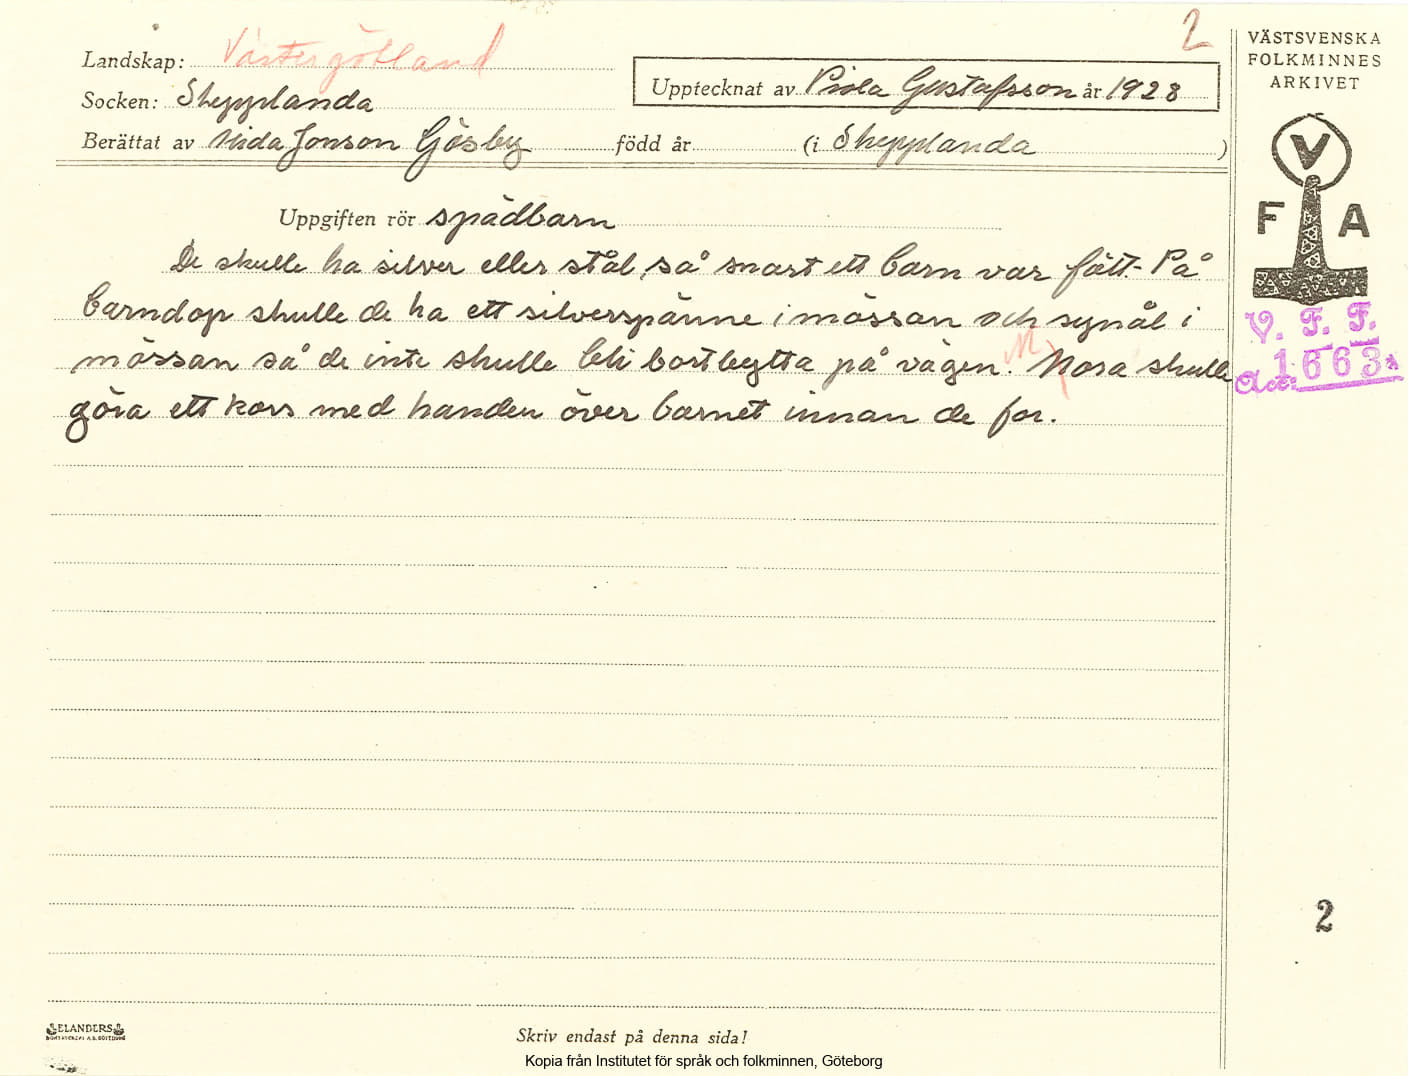 2
Landskap: Västergötland
Socken: Shepplanda
Upptecknat av Viola Gustafsson år 1928
Berättat av Hida Jonson Gösby född år (i Shepplanda )
VÄSTSVENSKA
FOLKMINNES
ARKIVET
V
F A
V. F. F.
Acc: 1663
Uppgiften rör spädbarn
De skulle ha silver eller stål, så snart ett barn var fött. På
barndop skulle de ha ett silverspänne i mössan och synål i
mössan så de inte skulle bli bortbytta på vägen. M Mora skulle
göra ett kors med handen över barnet innan de for.
2
ELANDERS
Skriv endast på denna sida!
Kopia från Institutet för språk och folkminnen, Göteborg